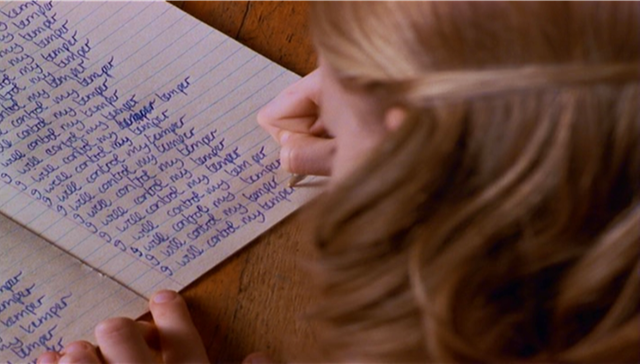 my temper
my temper
my temper
my temper
control my temper
control my temper
will control my temper
will control my temper
I will control my temper
I will control my temper
I will control my temper
I will control my temper
I will control my temper
I will control my temper
I will control my temper
I will control my temper
I will control my temper
I will control my temper
temper
temper
my temper
my temper